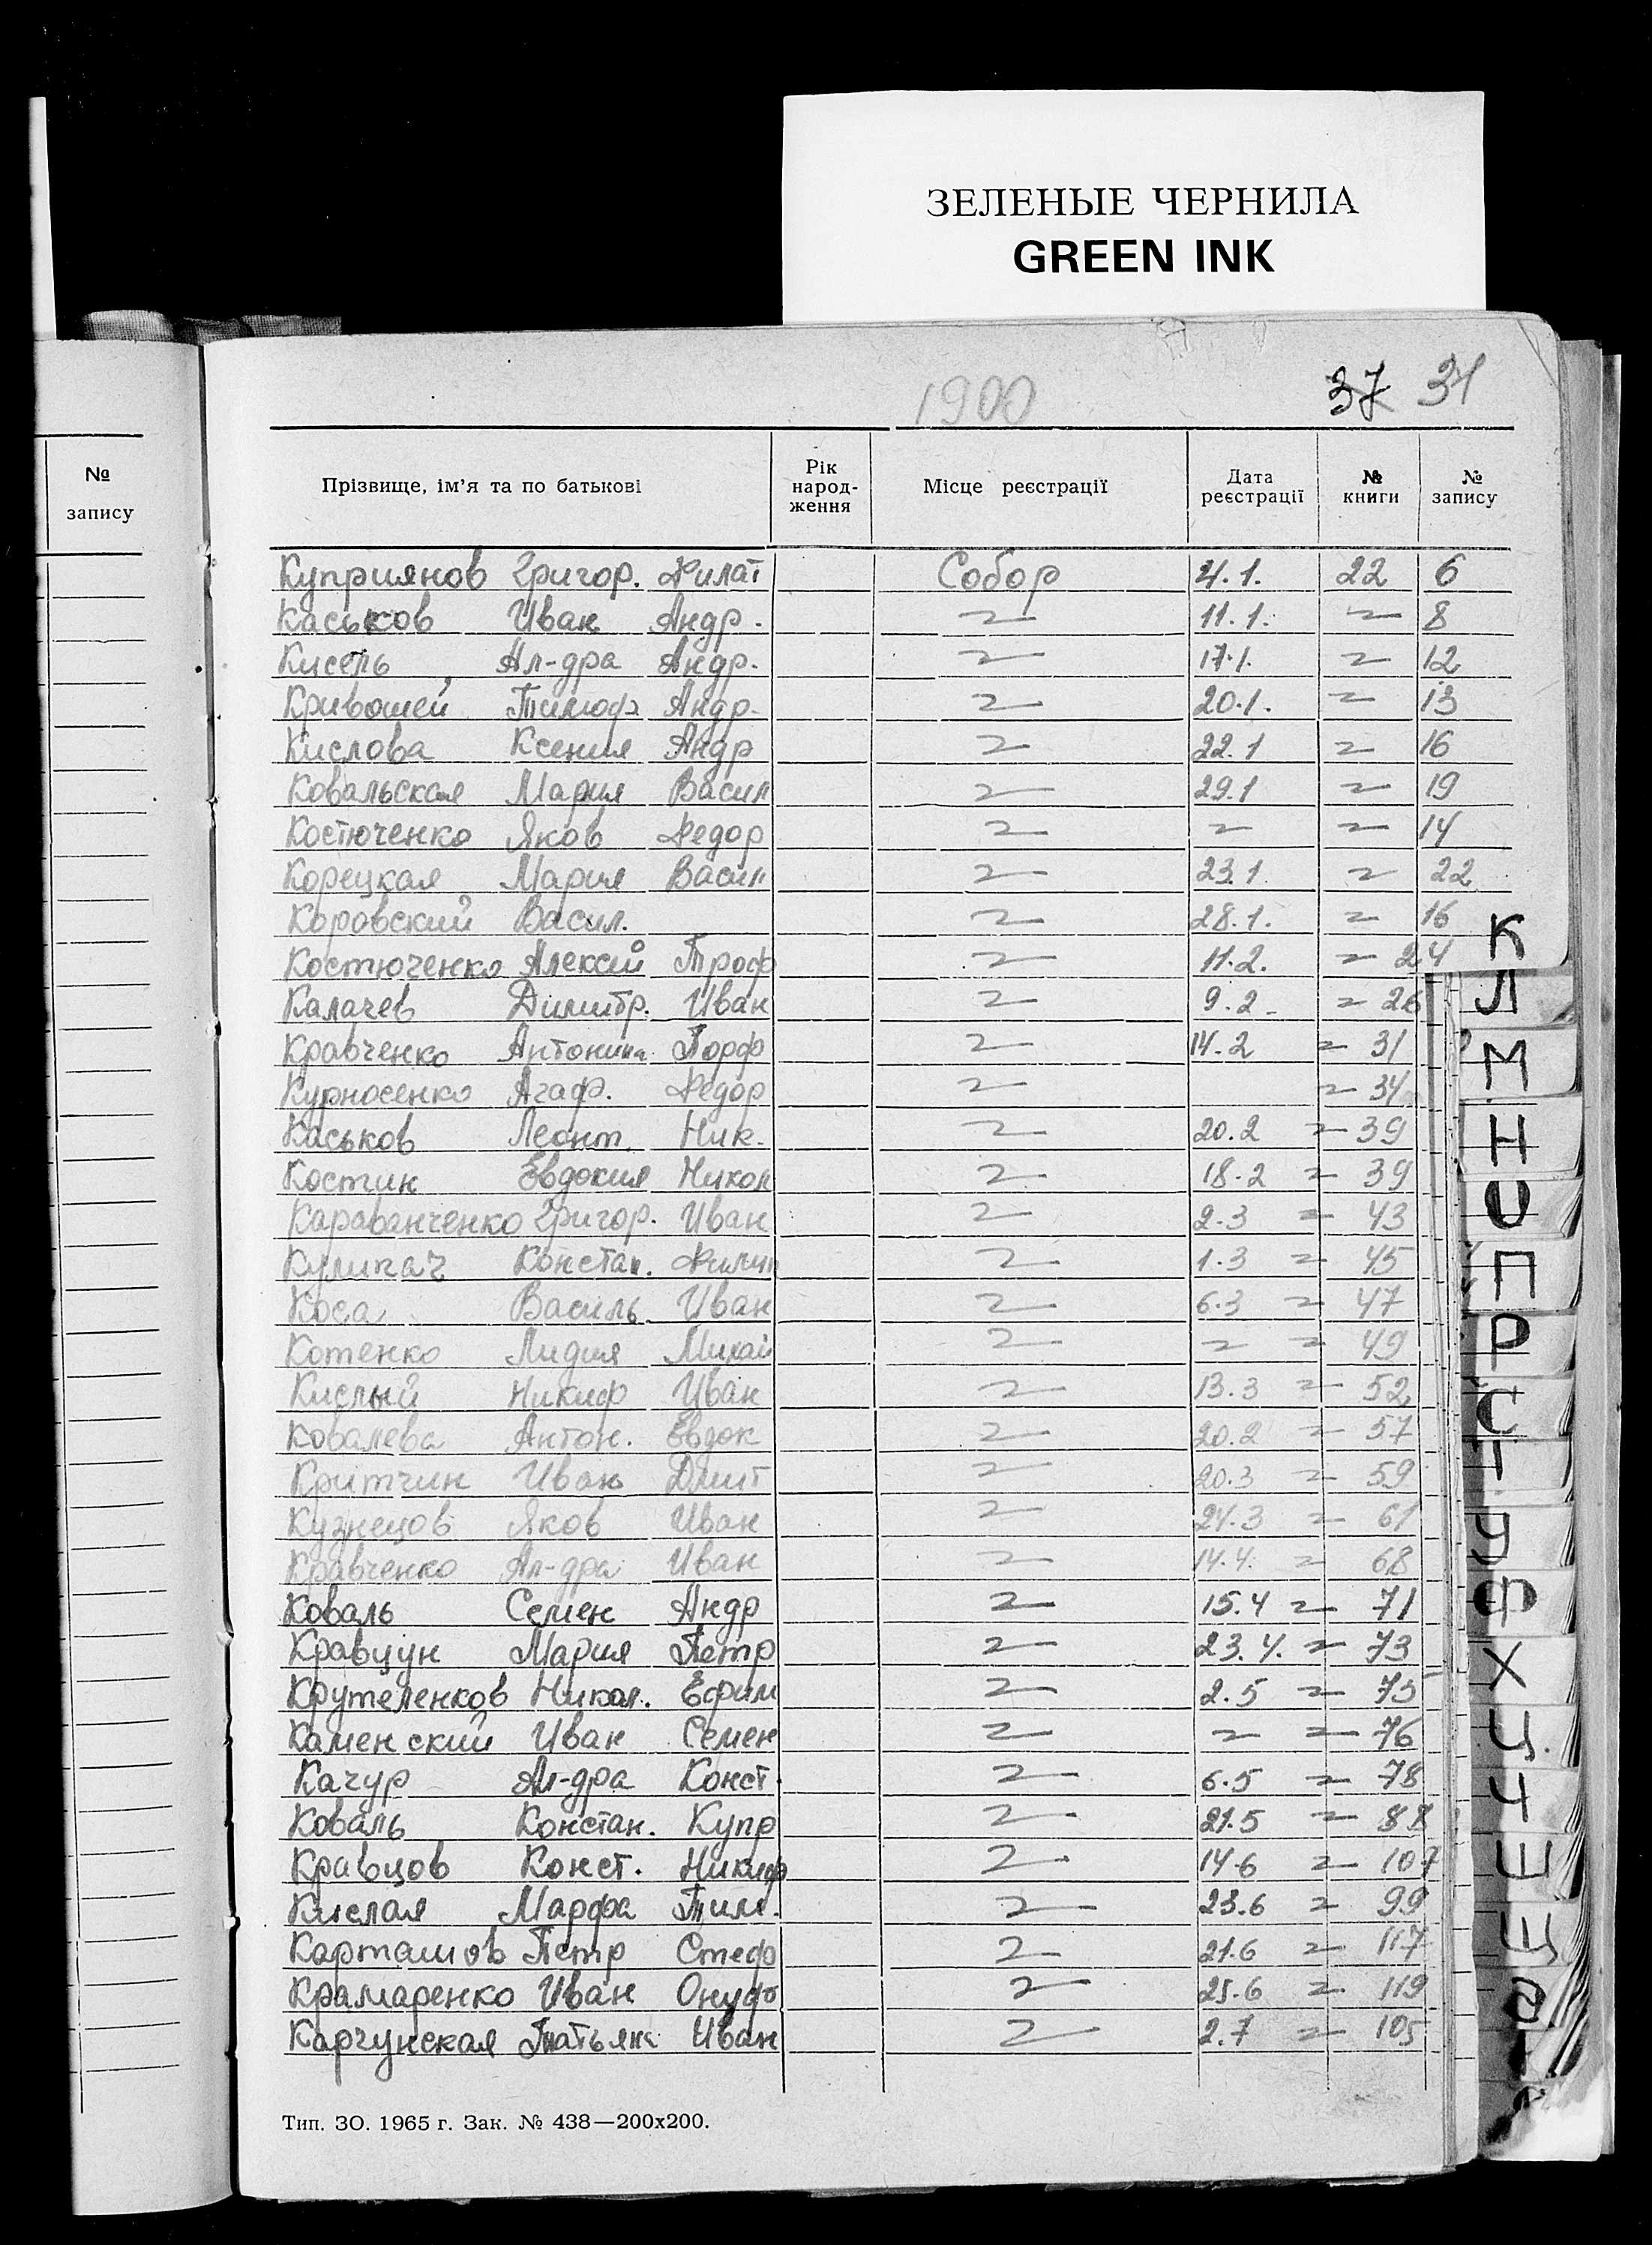 ЗЕЛЕНЫЕ ЧЕРНИЛА
GREEN INK
1900 37 31
№ запису
Прізвище, ім'я та по батькові Рік народ- ження Місце реєстрації Дата реєстрації № книги № запису
Куприянов Григор. Филат Собор 4.1. 22 6
Каськов Иван Андр. 〃 11.1. 〃 8
Кисель Ал-дра Андр. 〃 17.1. 〃 12
Кривошей Тимоф Андр. 〃 20.1. 〃 13
Кислова Ксения Андр 〃 22.1 〃 16
Ковальская Мария Васил 〃 29.1 〃 19
Костюченко Яков Федор 〃 〃 〃 14
Корецкая Мария Васил 〃 23.1. 〃 22
Коровский Васил. 〃 28.1. 〃 16
Костюченко Алексій Троф 〃 11.2. 〃 24
Калачев Димитр. Иван 〃 9.2. 〃 26
Кравченко Антонина Порф 〃 14.2 〃 31
Курносенко Агаф. Федор 〃 〃 34
Каськов Леонт. Ник. 〃 20.2 〃 39
Костин Евдокия Никол 〃 18.2 〃 39
Караванченко Григор. Иван 〃 2.3 〃 43
Кулипач Констан. Филип 〃 1.3 〃 45
Коса Василь Иван 〃 6.3 〃 47
Котенко Лидия Михай 〃 〃 〃 49
Кислый Никиф Иван 〃 13.3 〃 52
Ковалева Антон. Евдок 〃 20.2 〃 57
Критчин Иван Дмит 〃 20.3 〃 59
Кузнецов Яков Иван 〃 24.3 〃 61
Кравченко Ал-дра Иван 〃 14.4. 〃 68
Коваль Семен Андр 〃 15.4 〃 71
Кравцун Мария Петр 〃 23.4. 〃 73
Крутеленков Никол. Ефим 〃 2.5 〃 75
Каменский Иван Семен 〃 〃 〃 76
Качур Ал-дра Конст 〃 6.5 〃 78
Коваль Констан. Купр 〃 21.5 〃 88
Кравцов Конст. Никиф 〃 14.6 〃 107
Кислая Марфа Тим. 〃 23.6 〃 99
Карташов Петр Стеф 〃 21.6 〃 117
Крамаренко Иван Онуф 〃 25.6 〃 119
Карчунская Татьяна Иван 〃 2.7 〃 105
Тип. ЗО. 1965 г. Зак. № 438—200х200.
К
Л
М
Н
О
П
Р
С
Т
У
Ф
Х
Ц
Ч
Ш
Щ